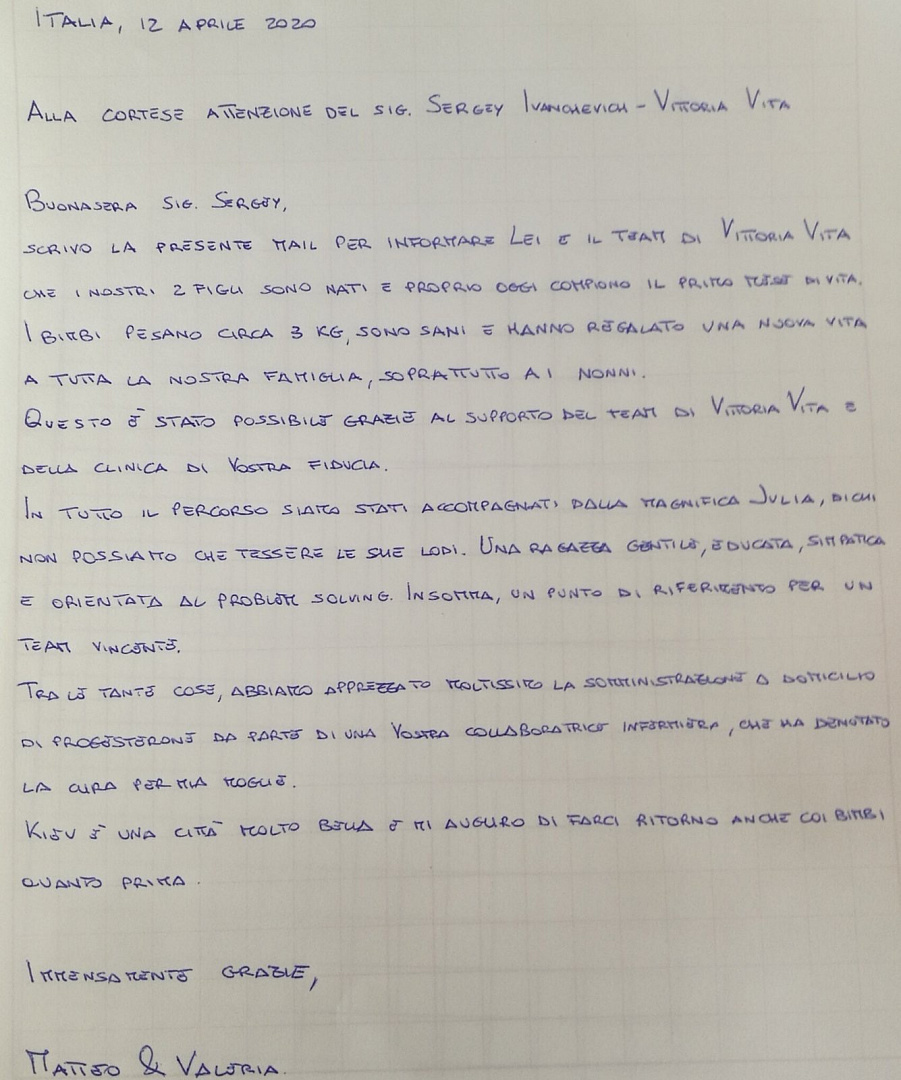 ITALIA, 12 APRILE 2020
ALLA CORTESE ATTENZIONE DEL SIG. SERGEY IVANCHEVICH - VITTORIA VITA
BUONASERA SIG. SERGEY,
SCRIVO LA PRESENTE MAIL PER INFORMARE LEI E IL TEAM DI VITTORIA VITA
CHE I NOSTRI 2 FIGLI SONO NATI E PROPRIO OGGI COMPIONO IL PRIMO MESE DI VITA.
I BIMBI PESANO CIRCA 3 KG, SONO SANI E HANNO REGALATO UNA NUOVA VITA
A TUTTA LA NOSTRA FAMIGLIA, SOPRATTUTTO AI NONNI.
QUESTO È STATO POSSIBILE GRAZIE AL SUPPORTO DEL TEAM DI VITTORIA VITA E
DELLA CLINICA DI VOSTRA FIDUCIA.
IN TUTTO IL PERCORSO SIAMO STATI ACCOMPAGNATI DALLA MAGNIFICA JULIA, DI CUI
NON POSSIAMO CHE TESSERE LE SUE LODI. UNA RAGAZZA GENTILE, EDUCATA, SIMPATICA
E ORIENTATA AL PROBLEM SOLVING. INSOMMA, UN PUNTO DI RIFERIMENTO PER UN
TEAM VINCENTE.
TRA LE TANTE COSE, ABBIAMO APPREZZATO MOLTISSIMO LA SOMMINISTRAZIONE A DOMICILIO
DI PROGESTERONE DA PARTE DI UNA VOSTRA COLLABORATRICE INFERMIERA, CHE HA DENOTATO
LA CURA PER MIA MOGLIE.
KIEV È UNA CITTÀ MOLTO BELLA E MI AUGURO DI FARCI RITORNO ANCHE COI BIMBI
QUANTO PRIMA.
IMMENSAMENTE GRAZIE,
MATTEO & VALERIA.